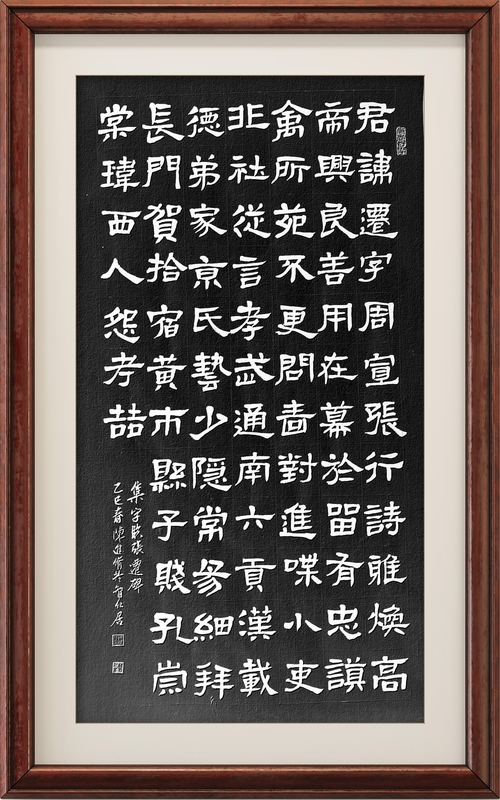 君諱遷字周宣張行詩雅煥高
帝興良善用在幕於留有忠謨
禽所苑不更問嗇對進喋小吏
非社從言孝武通南六貢漢載
德弟家京氏藝少隱常參細拜
長門賀拾宿黃巾縣子賤孔崇
棠瑋西人怨孝喆
集字臨張遷碑
乙巳春陳進